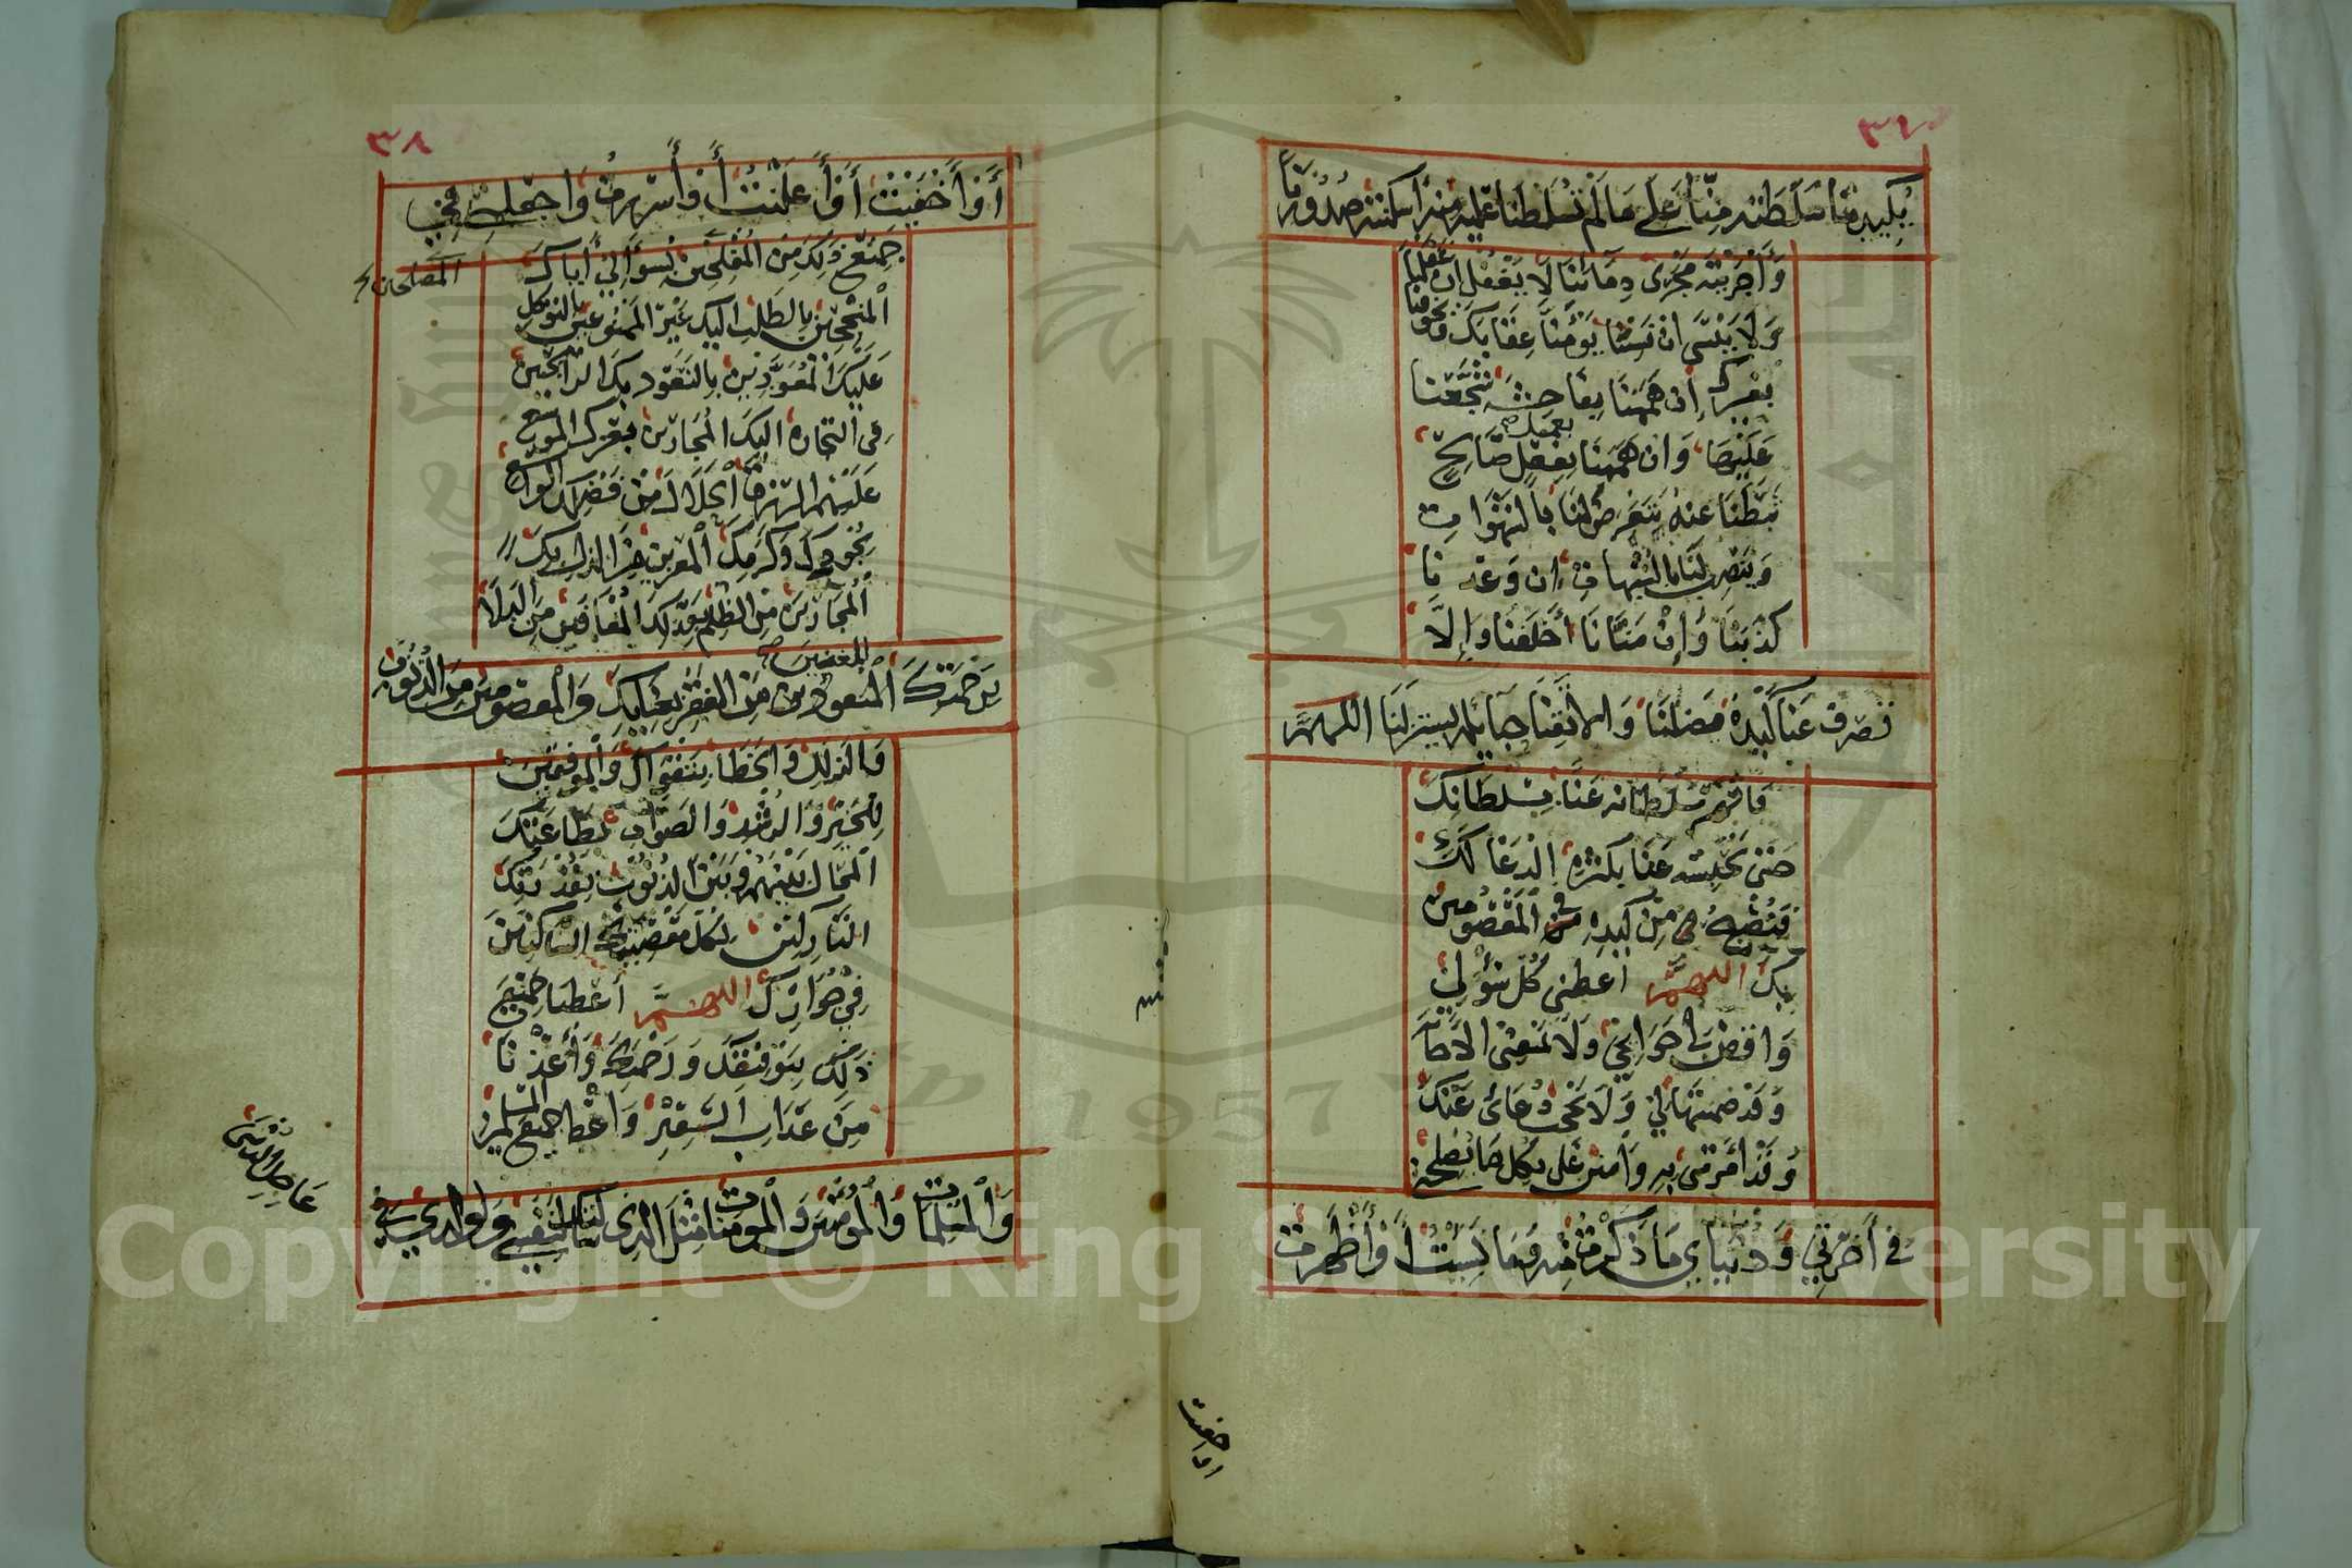 ٣٧
يكيد منا سلطته منا على ما لم تسلطنا عليه منه أسكنته صدورنا
وأجريته مجرى دمائنا لا يغفل ان غفلنا
ولا ينسى ان نسينا يؤمنا عقابك ويخوفنا
بغيرك إن هممنا بفاحشة شجعنا
عليها وان هممنا بعمل صالح
ثبطنا عنه يتعرض لنا بالشهوات
وينصب لنا بالشبهات ان وعدنا
كذبنا وإن منانا أخلفنا وإلا
تصرف عنا كيده يضلنا وإلا تقنا حبائله يستزلنا اللهم
فاقهر سلطانه عنا بسلطانك
حتى تحبسه عنا بكثرة الدعاء لك
فنصبح من كيده في المعصومين
بك اللهم أعطني كل سؤلي
واقض لي حوائجي ولا تمنعني الاجابة
وقد ضمنتها لي ولا تحجب دعائي عنك
وقد امرتني به وامنن علي بكل ما يصلحني
في آخرتي ودنياي ما ذكرت منه وما نسيت أو أظهرت
او اخفيت
٣٨
أو أخفيت أو أعلنت أو أسررت واجعلني في
جميع ذلك من المفلحين بسؤالي أياك
المصلحين
المنجحين بالطلب اليك غير الممنوعين بالتوكل
عليك المعوذين بالتعوذ بك الرابحين
في التجارة اليك المجارين بعزك الموسع
عليهم الرزق الحلال من فضلك الواسع
بجودك وكرمك المعزين من الذل بك
المجارين من الظلم بعدلك المعافين من البلاء
برحمتك المغنين من الفقر بغناك والمعصومين من الذنوب
والزلل والخطاء بتقواك والموفقين
للخير والرشد والصواب بطاعتك
المحال بينهم وبين الذنوب بقدرتك
التاركين لكل معصيتك الساكنين
في جوارك اللهم أعطنا جميع
ذلك بتوفيقك ورحمتك وأعذنا
من عذاب السعير واعط جميع المسلمين
والمسلمات والمؤمنين والمؤمنات مثل الذي سألتك لنفسي ولوالدي في
عاجل الدنيا